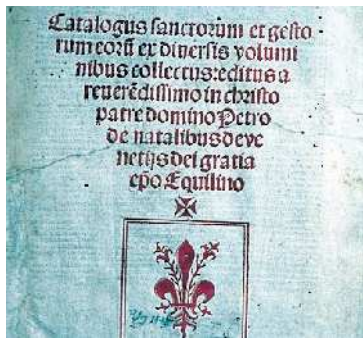 Catalogus sanctorum et gesto
rum eorũ ex diuersis volumi
nibus collectus: editus a
reuerẽdissimo in christo
patre domino Petro
de natalibus de ve
netijs dei gratia
ep̃o Equilino